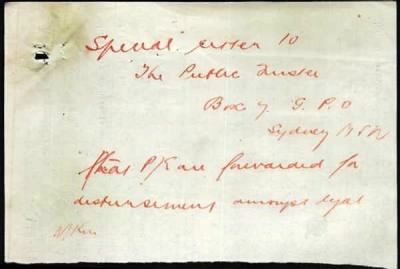 Special letter to
The Public Trustee
Box 7 G.P.O
Sydney NSW
P/K are forwarded for
disbursement amongst legal